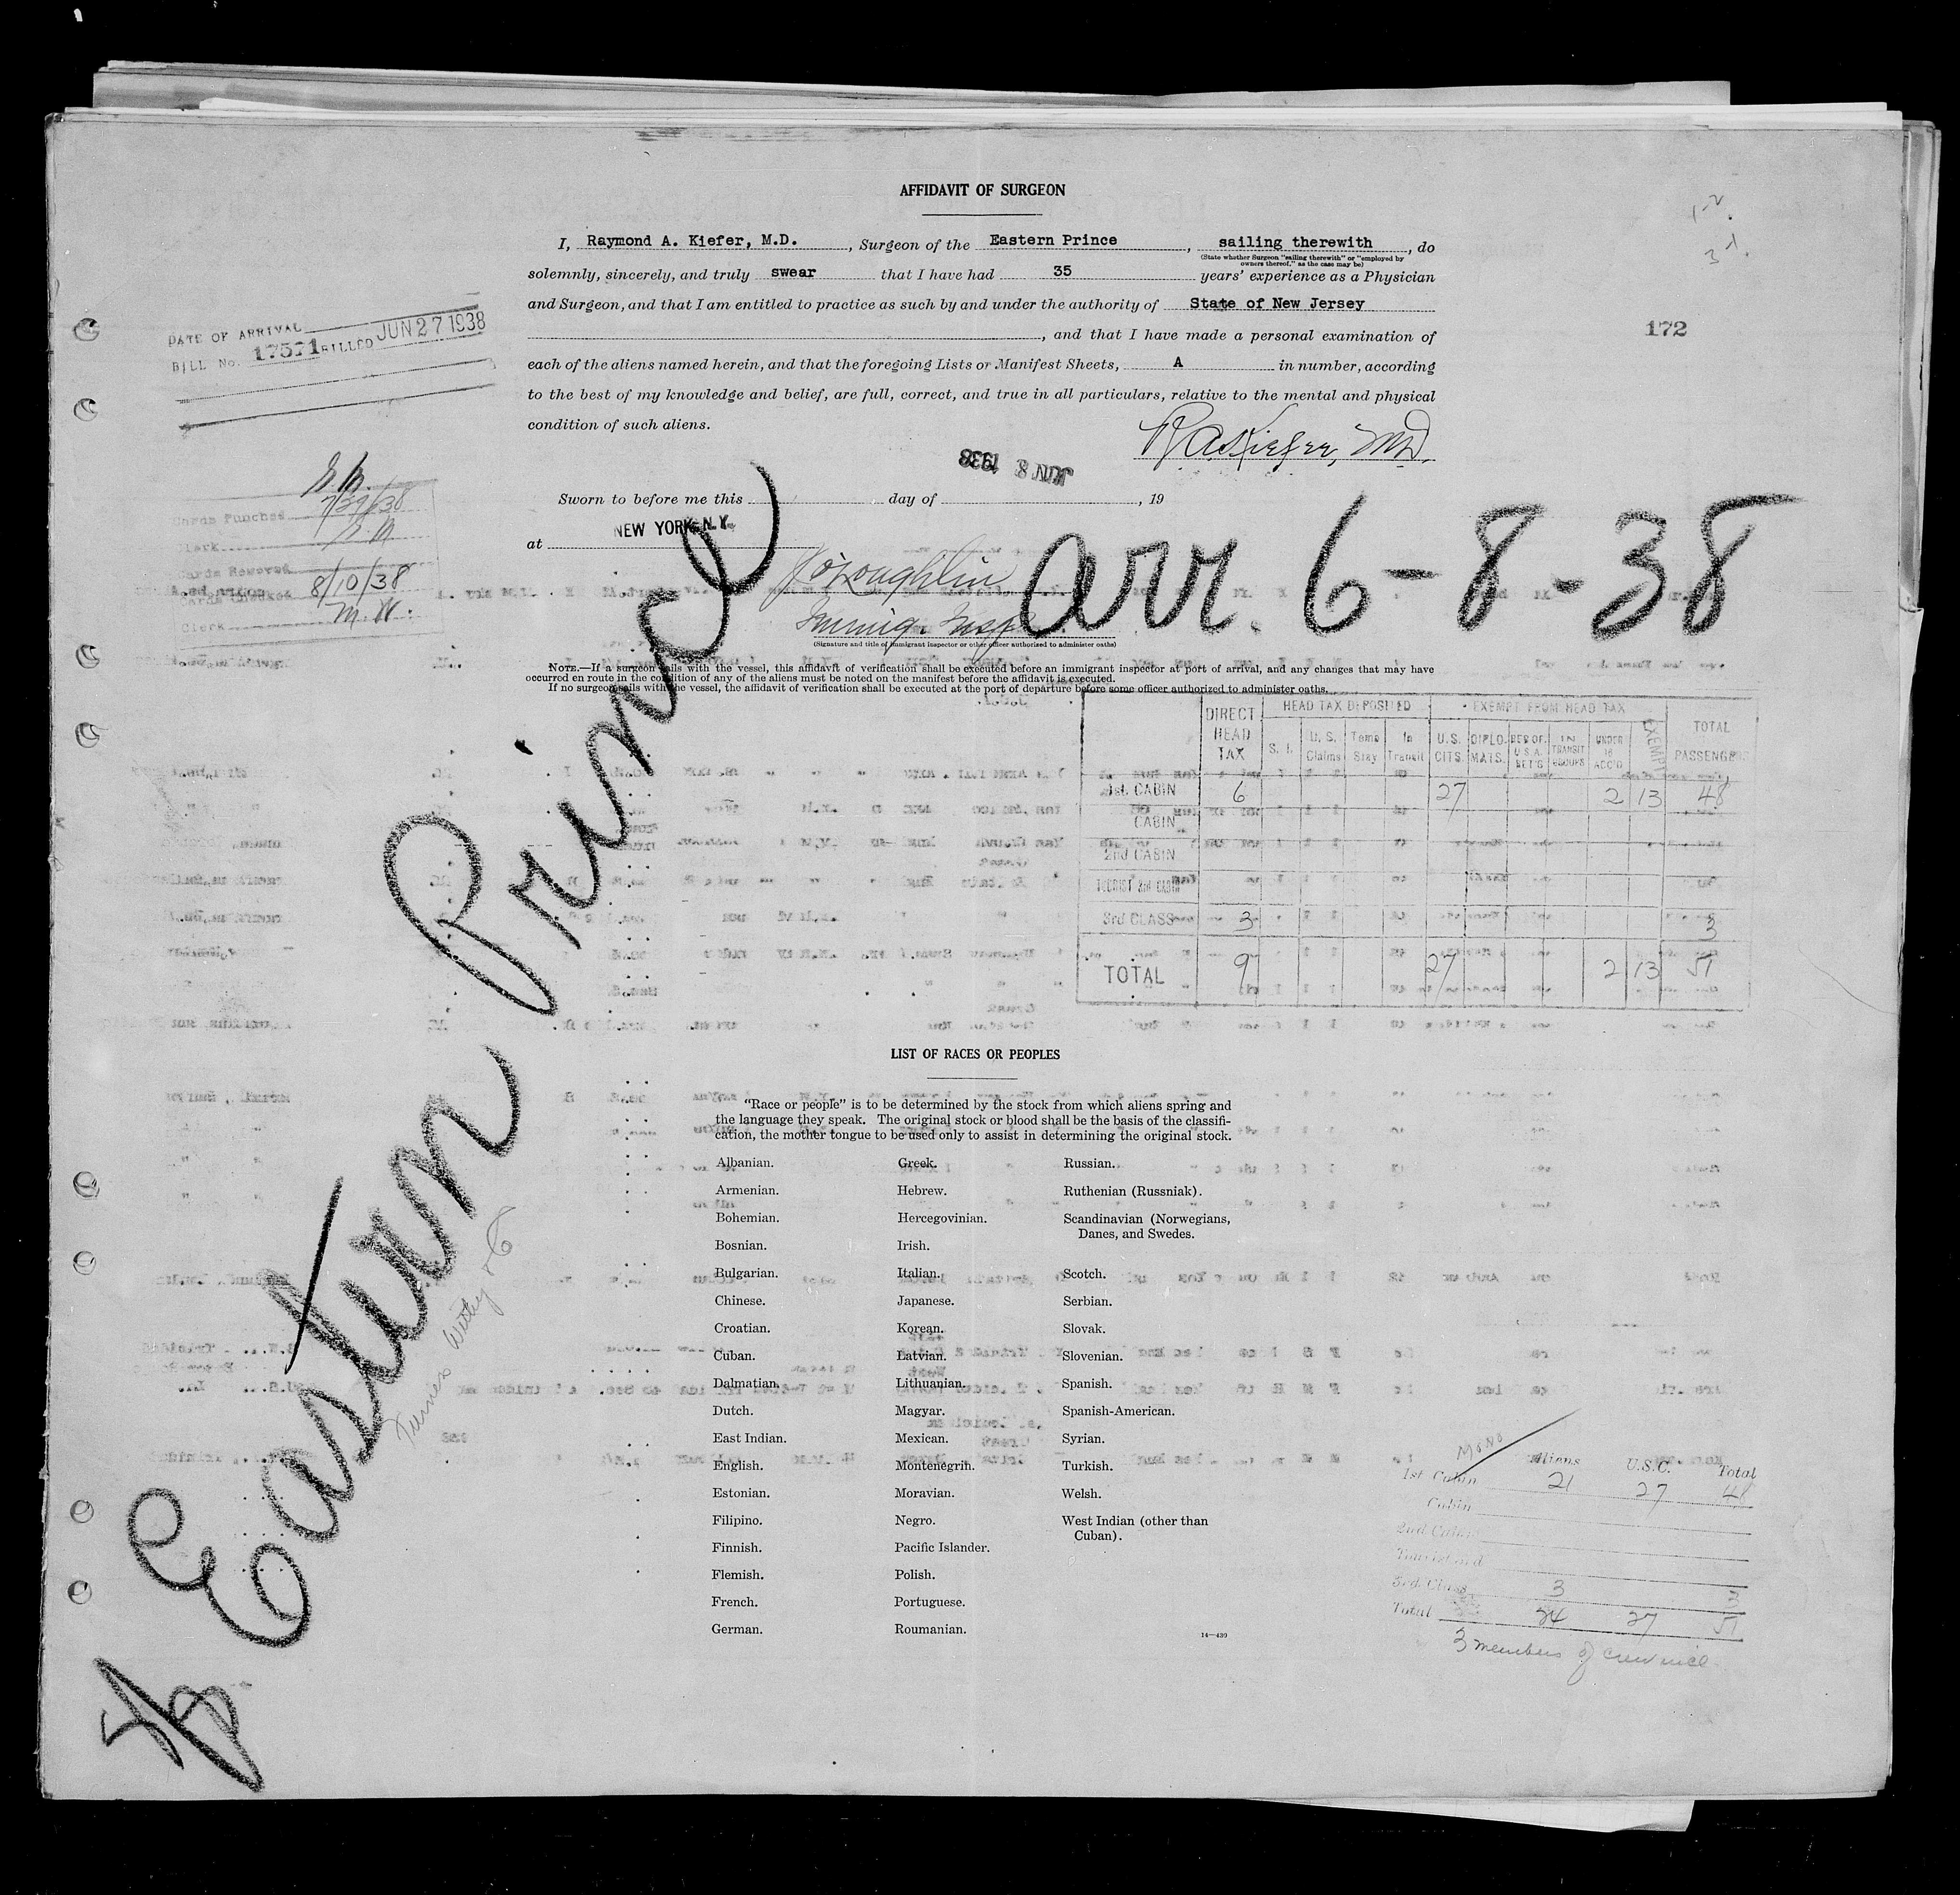 AFFIDAVIT OF SURGEON
I, Raymond A. Kiefer, M.D. , Surgeon of the Eastern Prince , sailing therewith , do
(State whether Surgeon "sailing therewith" or "employed by
owners thereof," as the case may be)
solemnly, sincerely, and truly swear that I have had 35 years' experience as a Physician
and Surgeon, and that I am entitled to practice as such by and under the authority of State of New Jersey
, and that I have made a personal examination of
each of the aliens named herein, and that the foregoing Lists or Manifest Sheets, A in number, according
to the best of my knowledge and belief, are full, correct, and true in all particulars, relative to the mental and physical
condition of such aliens.
R A Kiefer, MD.
JUN 8 1938
Sworn to before me this day of , 19
at NEW YORK, N.Y.
Immig. Insp
(Signature and title of immigrant inspector or other officer authorized to administer oaths)
NOTE.—If a surgeon sails with the vessel, this affidavit of verification shall be executed before an immigrant inspector at port of arrival, and any changes that may have
occurred en route in the condition of any of the aliens must be noted on the manifest before the affidavit is executed.
If no surgeon sails with the vessel, the affidavit of verification shall be executed at the port of departure before some officer authorized to administer oaths.
172
DATE OF ARRIVAL
BILL No. 17571 BILLED JUN 27 1938
Cards Punched 7/29/38
Clerk
Cards Removed
Cards Checked 8/10/38
Clerk M. W.
arr. 6-8-38
Eastern Prince
DIRECT HEAD TAX HEAD TAX DEPOSITED EXEMPT FROM HEAD TAX TOTAL PASSENGERS
S. I. U. S. Claims Temp Stay In Transit U.S. CITS. DIPLO MATS. RES OF U.S.A. RET'G IN TRANSIT GROUPS UNDER 16 ACC'D EXEMPT
1st. CABIN 6 27 2 13 48
CABIN
2nd CABIN
TOURIST 3rd CABIN
3rd CLASS 3 3
TOTAL 9 27 2 13 51
LIST OF RACES OR PEOPLES
"Race or people" is to be determined by the stock from which aliens spring and
the language they speak. The original stock or blood shall be the basis of the classifi-
cation, the mother tongue to be used only to assist in determining the original stock.
Albanian.
Armenian.
Bohemian.
Bosnian.
Bulgarian.
Chinese.
Croatian.
Cuban.
Dalmatian.
Dutch.
East Indian.
English.
Estonian.
Filipino.
Finnish.
Flemish.
French.
German.
Greek.
Hebrew.
Hercegovinian.
Irish.
Italian.
Japanese.
Korean.
Latvian.
Lithuanian.
Magyar.
Mexican.
Montenegrin.
Moravian.
Negro.
Pacific Islander.
Polish.
Portuguese.
Roumanian.
Russian.
Ruthenian (Russniak).
Scandinavian (Norwegians,
Danes, and Swedes.
Scotch.
Serbian.
Slovak.
Slovenian.
Spanish.
Spanish-American.
Syrian.
Turkish.
Welsh.
West Indian (other than
Cuban).
14—430
Aliens U.S.C. Total
1st Cabin 21 27 48
Cabin
2nd Cabin
Tourist 3rd
3rd Class 3 3
Total 24 27 51
3 members of crew